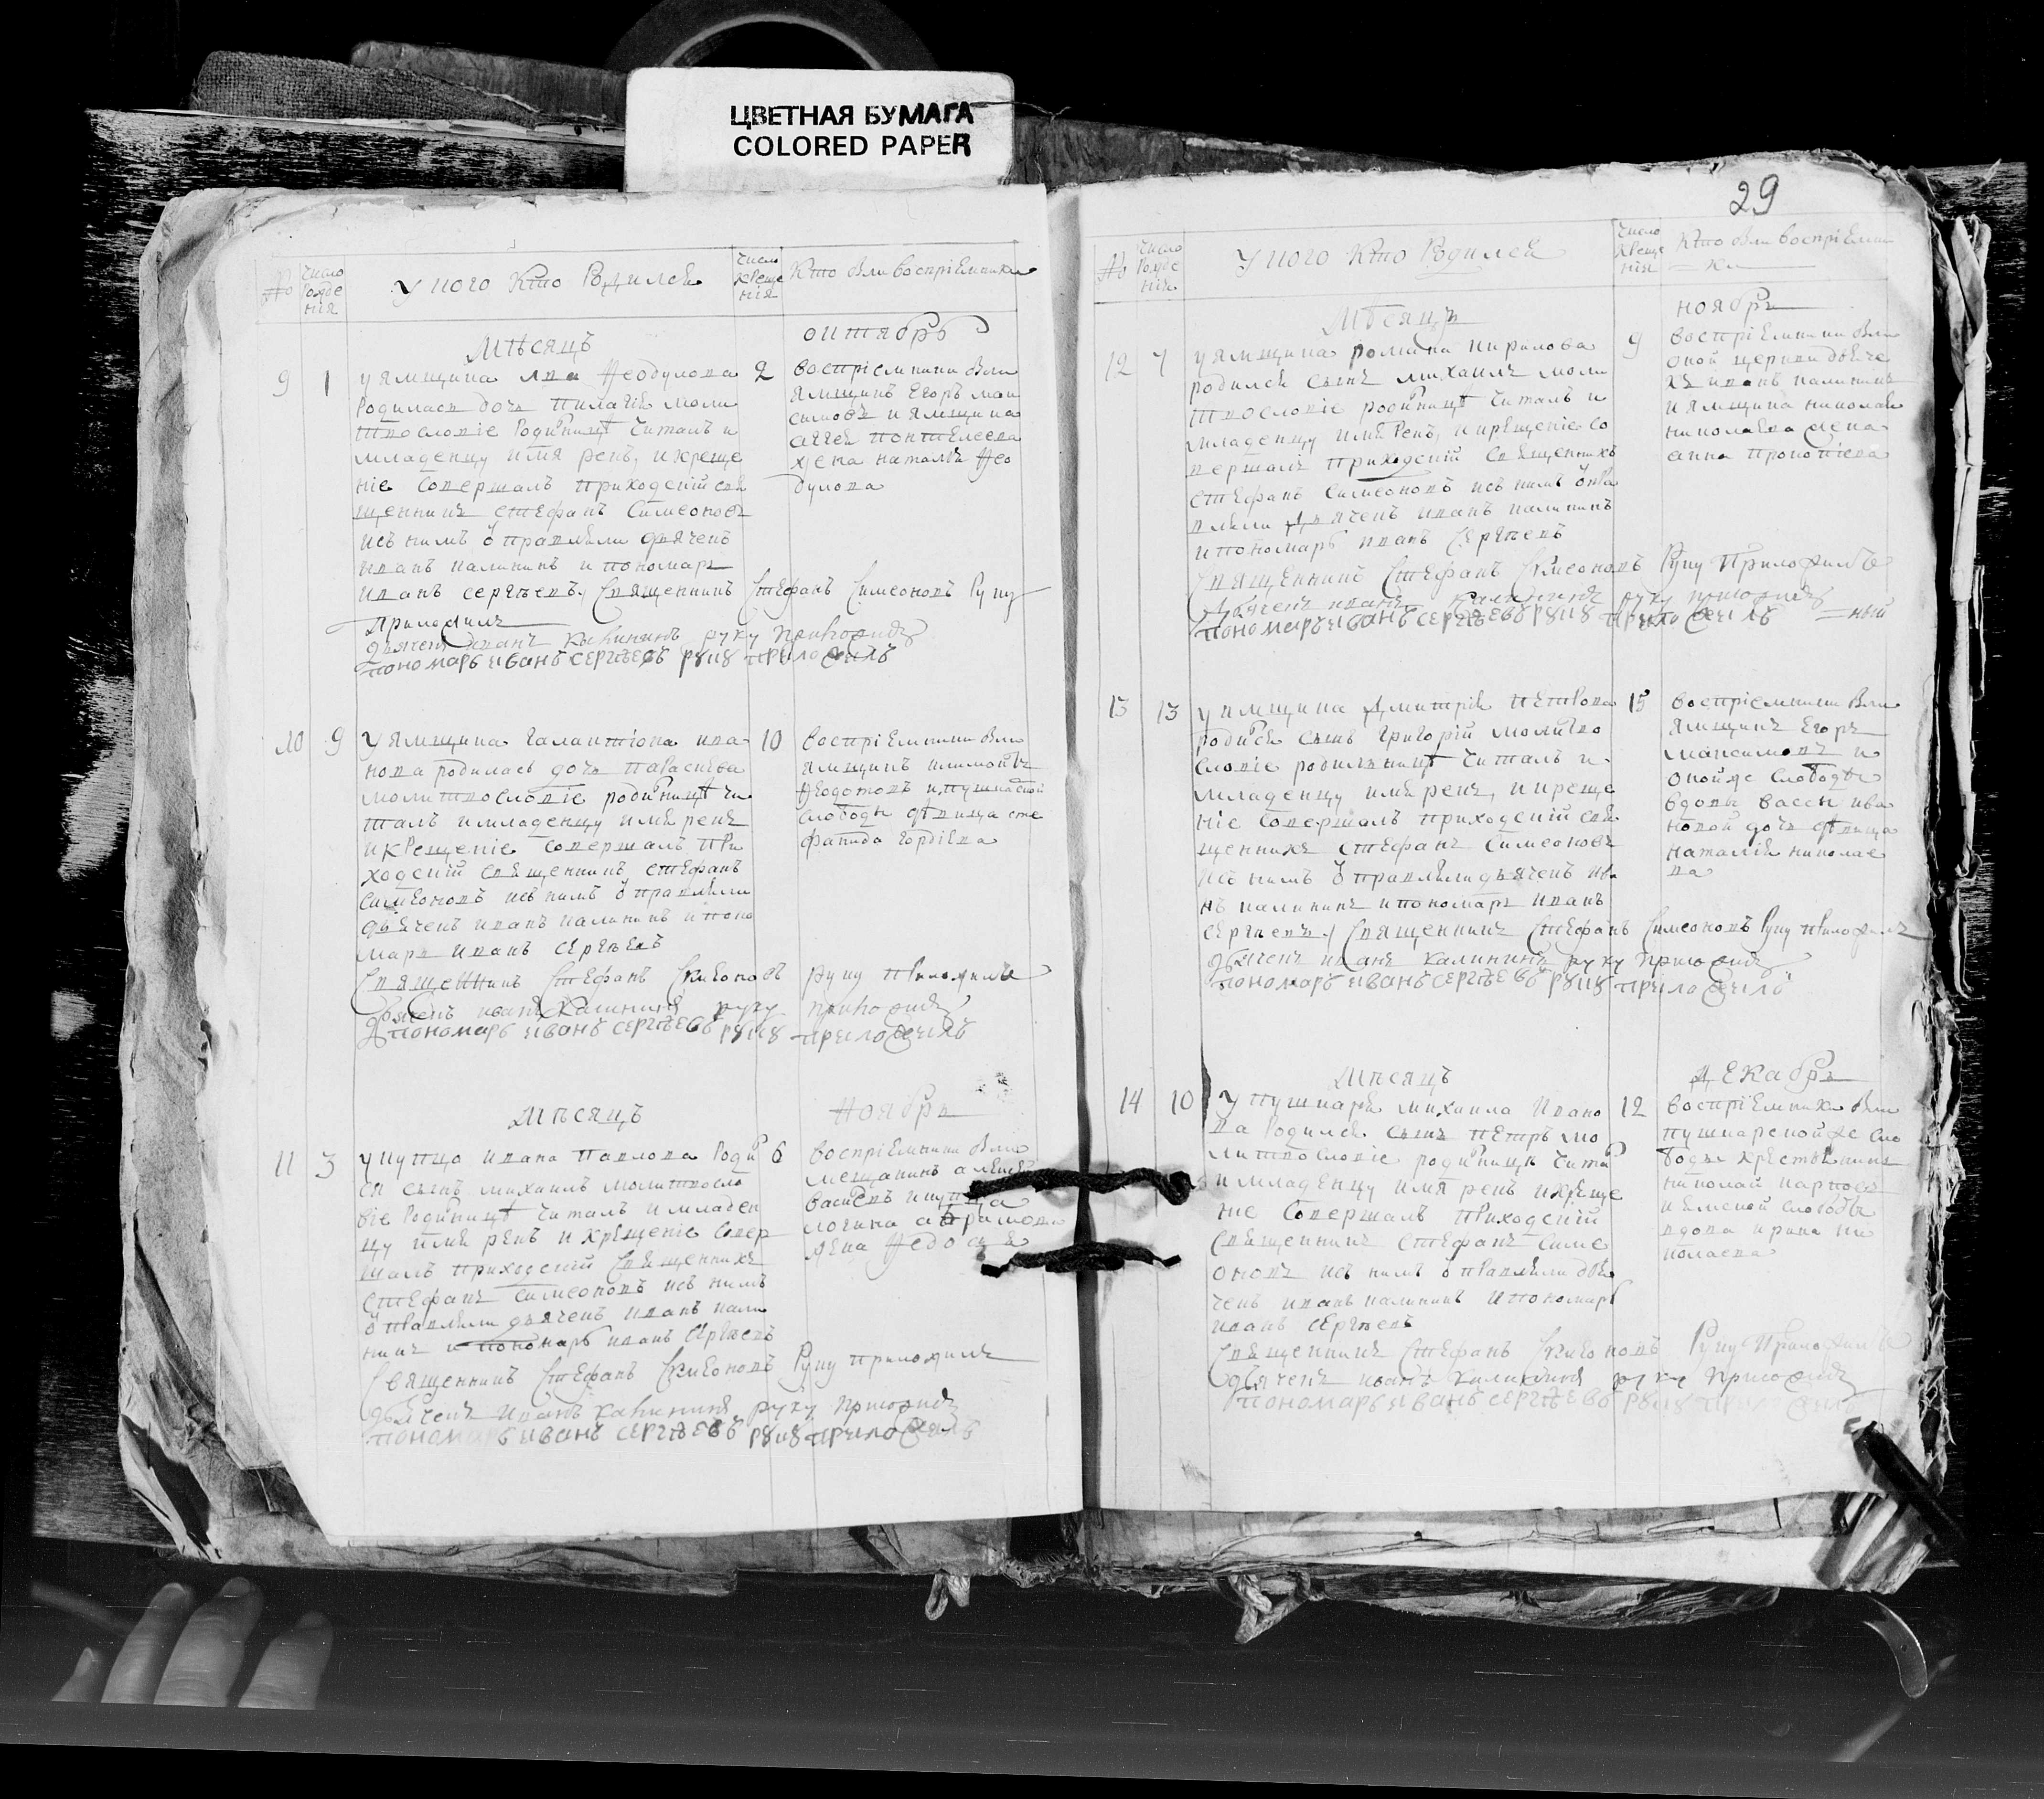 ЦВЕТНАЯ БУМАГА
COLORED PAPER
№
Число Рожде нія
У кого Кто Родился
Число Креще нія
Кто были воспріемники
Мѣсяцъ
октябрь
9
1
у ямщика лва Феодулова
Родилась дочь пилагія моли
твословіе Родилницѣ читалъ и
младенцу имя рекъ, и креще
ніе совершалъ приходскій свя
щенникъ стефанъ Симеоновъ
исъ нимъ отправляли дьячекъ
иванъ калининъ и пономарь
иванъ сергѣевъ, Священникъ Стефанъ Симеоновъ Руку
Приложилъ
дьячекъ иванъ калининъ руку приложилъ
пономарь иванъ сергѣевъ руку приложилъ
2
воспріемники были
ямщикъ Егоръ мак
симовъ и ямщика
жена наталья Фео
дулова
10
9
У ямщика галактіона ива
нова родилась дочь параскева
молитвословіе родилницѣ чи
талъ и младенцу имя рекъ
и крещеніе совершалъ при
ходскій священникъ стефанъ
симеоновъ исъ нимъ отправляли
дьячекъ иванъ калининъ и поно
марь иванъ сергѣевъ
Священникъ Стефанъ Симеоновъ руку приложилъ
дьячекъ иванъ калининъ руку приложилъ
пономарь иванъ сергѣевъ руку приложилъ
10
воспріемники были
ямщикъ
Феодотовъ и пушкарской
слободы дѣвица сте
фанида гордіева
Мѣсяцъ
Ноябрь
11
3
у купца ивана павлова Роди
ся сынъ михаилъ молитвосло
віе Родилницѣ читалъ и младен
цу имя рекъ и крещеніе совер
шалъ приходскій священникъ
стефанъ симеоновъ исъ нимъ
отправляли дьячекъ иванъ кали
нинъ и пономарь иванъ сергѣевъ
Священникъ Стефанъ Симеоновъ Руку приложилъ
дьячекъ Иванъ калининъ руку приложилъ
пономарь иванъ сергѣевъ руку приложилъ
6
воспріемники были
мещанинъ
и купца
логина
жена
29
№
Число Рожде нія
У кого Кто Родился
Число Креще нія
Кто были воспріемни
ки
Мѣсяцъ
ноябрь
12
7
у ямщика романа кирилова
родился сынъ михаилъ моли
твословіе родилницѣ читалъ и
младенцу имя рекъ, и крещеніе со
вершалъ приходскій священникъ
стефанъ симеоновъ исъ нимъ отпра
вляли дьячекъ иванъ калининъ
и пономарь иванъ сергѣевъ
Священникъ Стефанъ Симеоновъ Руку Приложилъ
дьячекъ иванъ калининъ руку приложилъ
пономарь иванъ сергѣевъ руку приложилъ
9
воспріемники были
оной церкви дьяче
къ иванъ калининъ
и ямщика николая
николаева жена
анна прокопіева
13
13
у ямщика Дмитрія петрова
родился сынъ григорій молитво
словіе родилницѣ читалъ и
младенцу имя рекъ, и креще
ніе совершалъ приходскій свя
щенникъ стефанъ симеоновъ
исъ нимъ отправляли дьячекъ ива
нъ калининъ и пономарь иванъ
сергѣевъ, Священникъ Стефанъ Симеоновъ Руку приложилъ
дьячекъ иванъ калининъ руку приложилъ
пономарь иванъ сергѣевъ руку приложилъ
15
воспріемники были
ямщикъ Егоръ
максимовъ и
оной же слободы
вдовы вассы ива
новой дочь дѣвица
наталія николае
ва
Мѣсяцъ
Декабрь
14
10
У пушкаря михаила Ивано
ва Родился сынъ петръ мо
литвословіе родилницѣ чита
и младенцу имя рекъ и креще
ніе совершалъ приходскій
священникъ стефанъ симе
оновъ исъ нимъ отправляли дья
чекъ иванъ калининъ и пономарь
иванъ сергѣевъ
Священникъ Стефанъ Симеоновъ Руку Приложилъ
дьячекъ иванъ калининъ руку приложилъ
пономарь иванъ сергѣевъ руку приложилъ
12
воспріемники были
пушкарской же сло
боды крестьянинъ
николай карповъ
и ямской слободы
вдова ирина ни
колаева